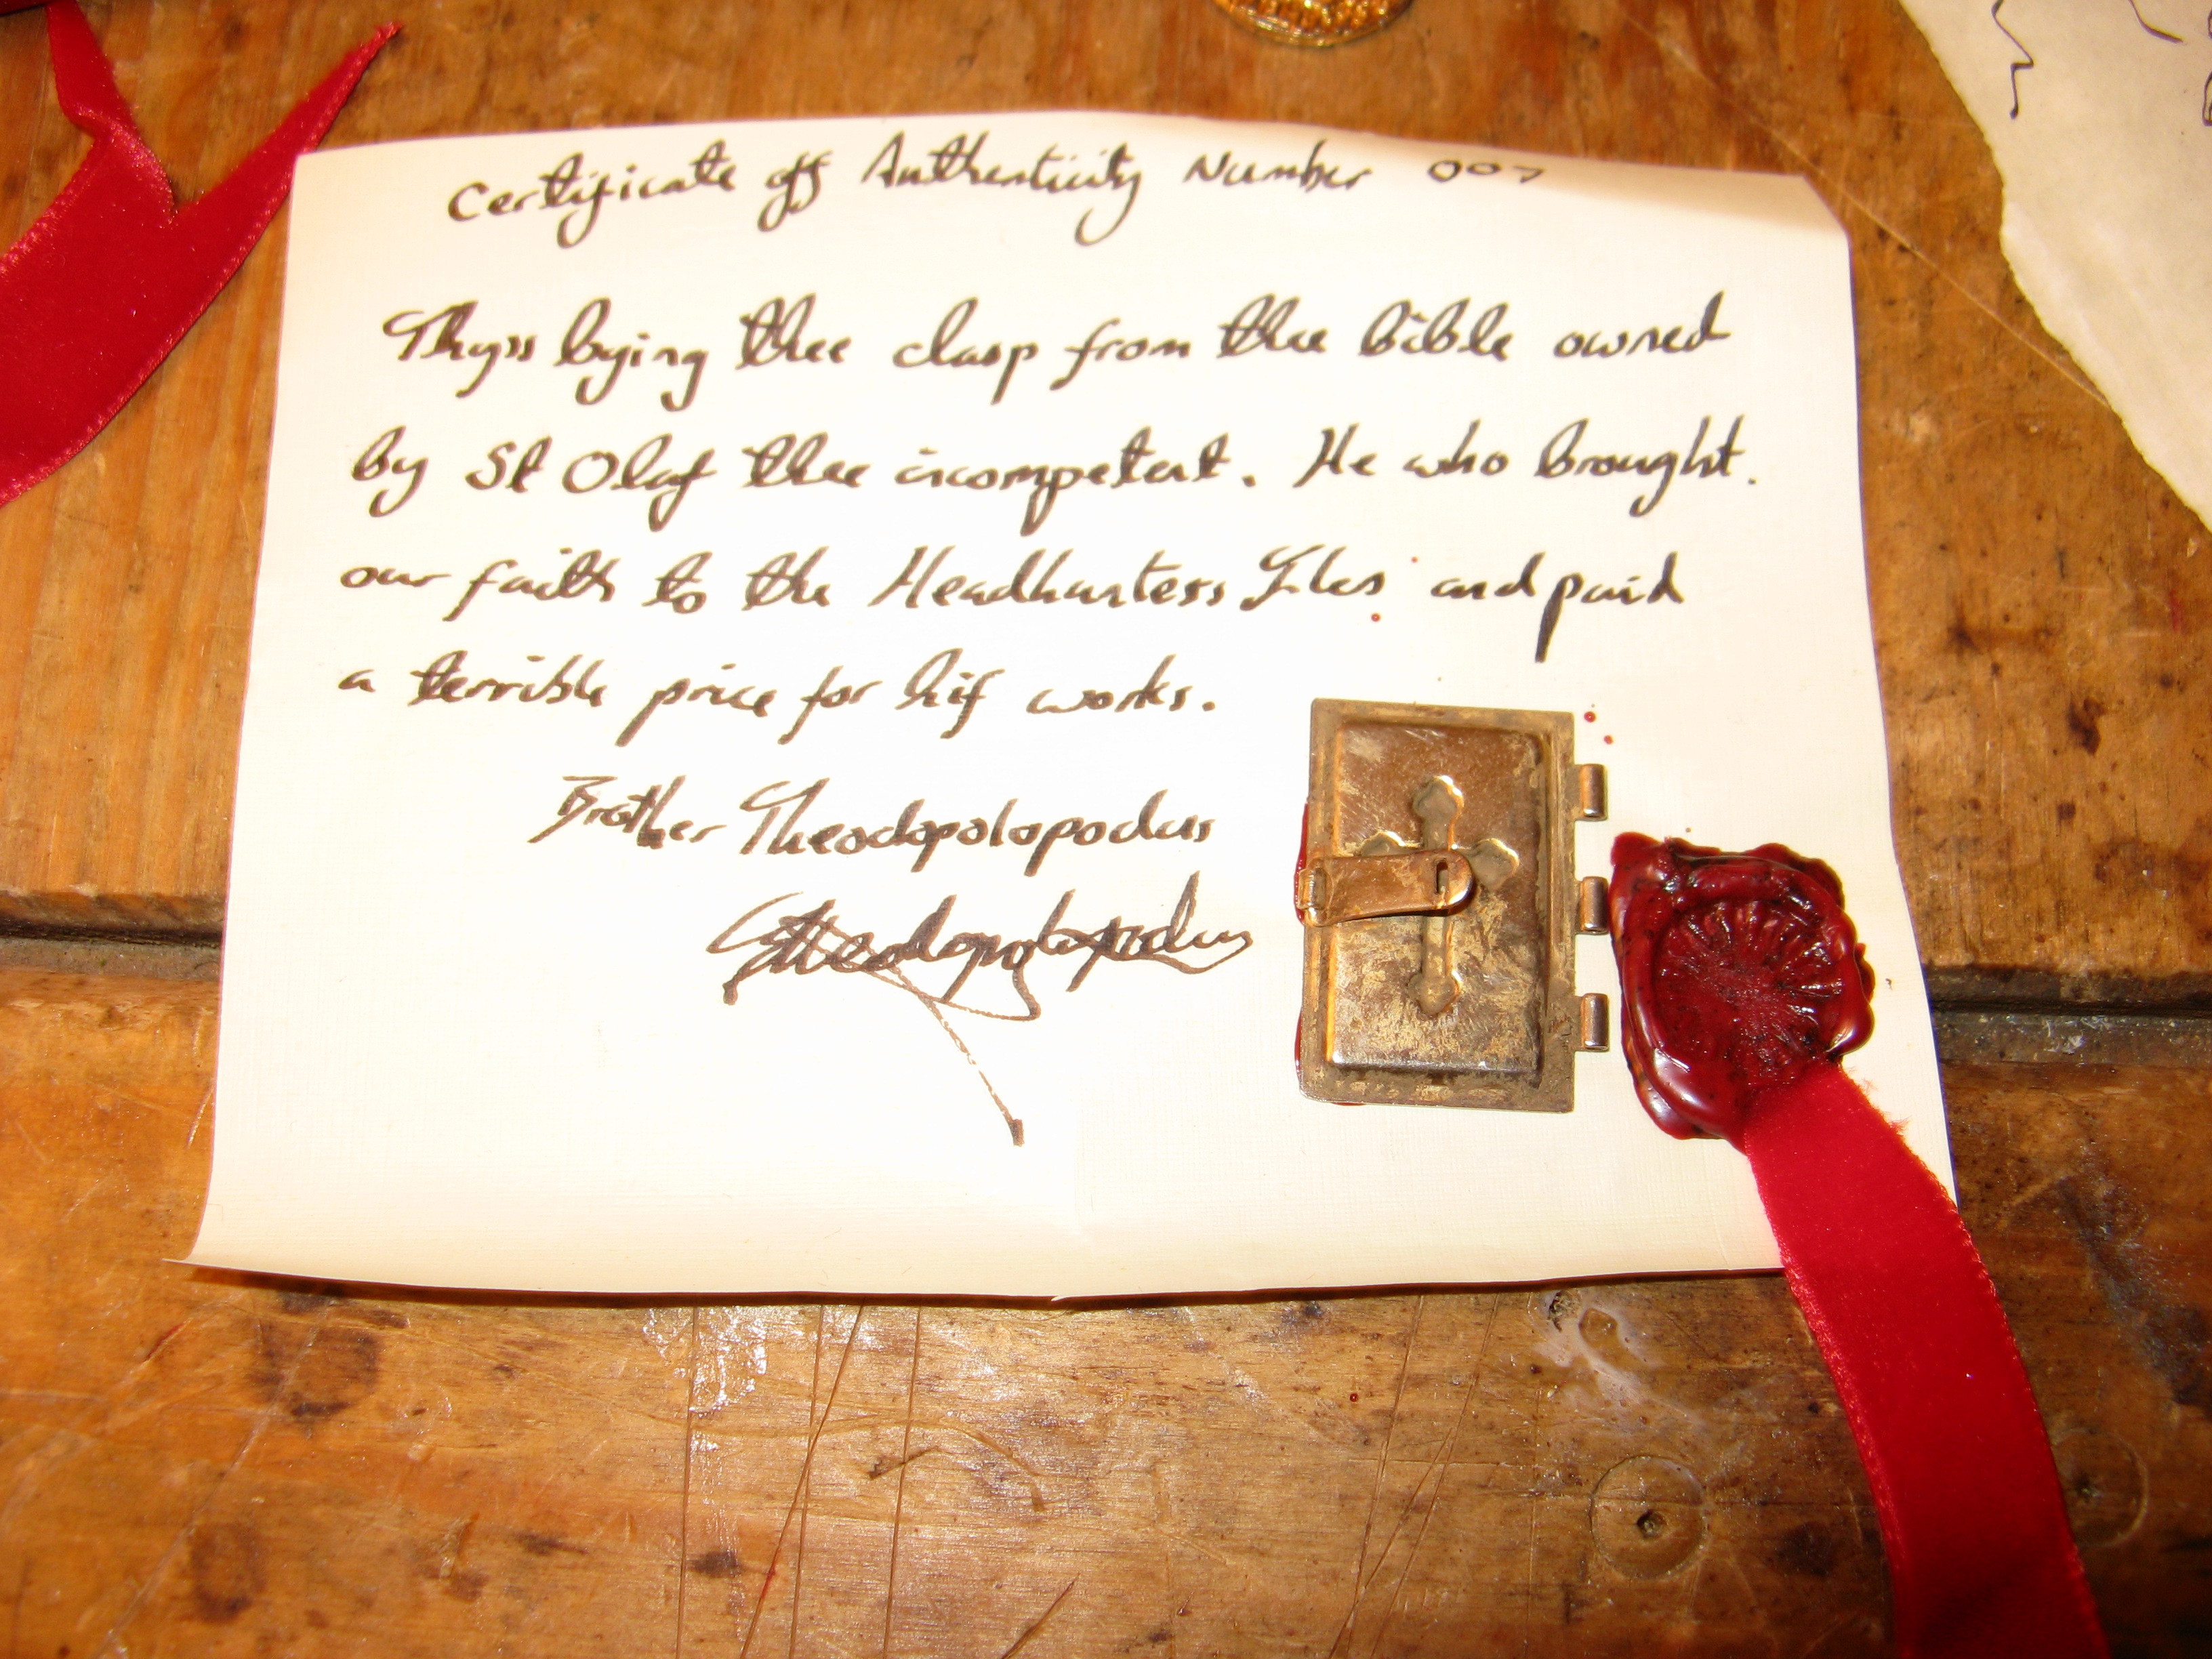 Certificate off Authenticity Number 007
Thyss bying thee clasp from thee bible owned
by St Olaf thee incompetent. He who brought.
our faith to the Headhunterss Iles and paid
a terrible price for hif works.
Brother Theodopolopodus
Theodopolopodus